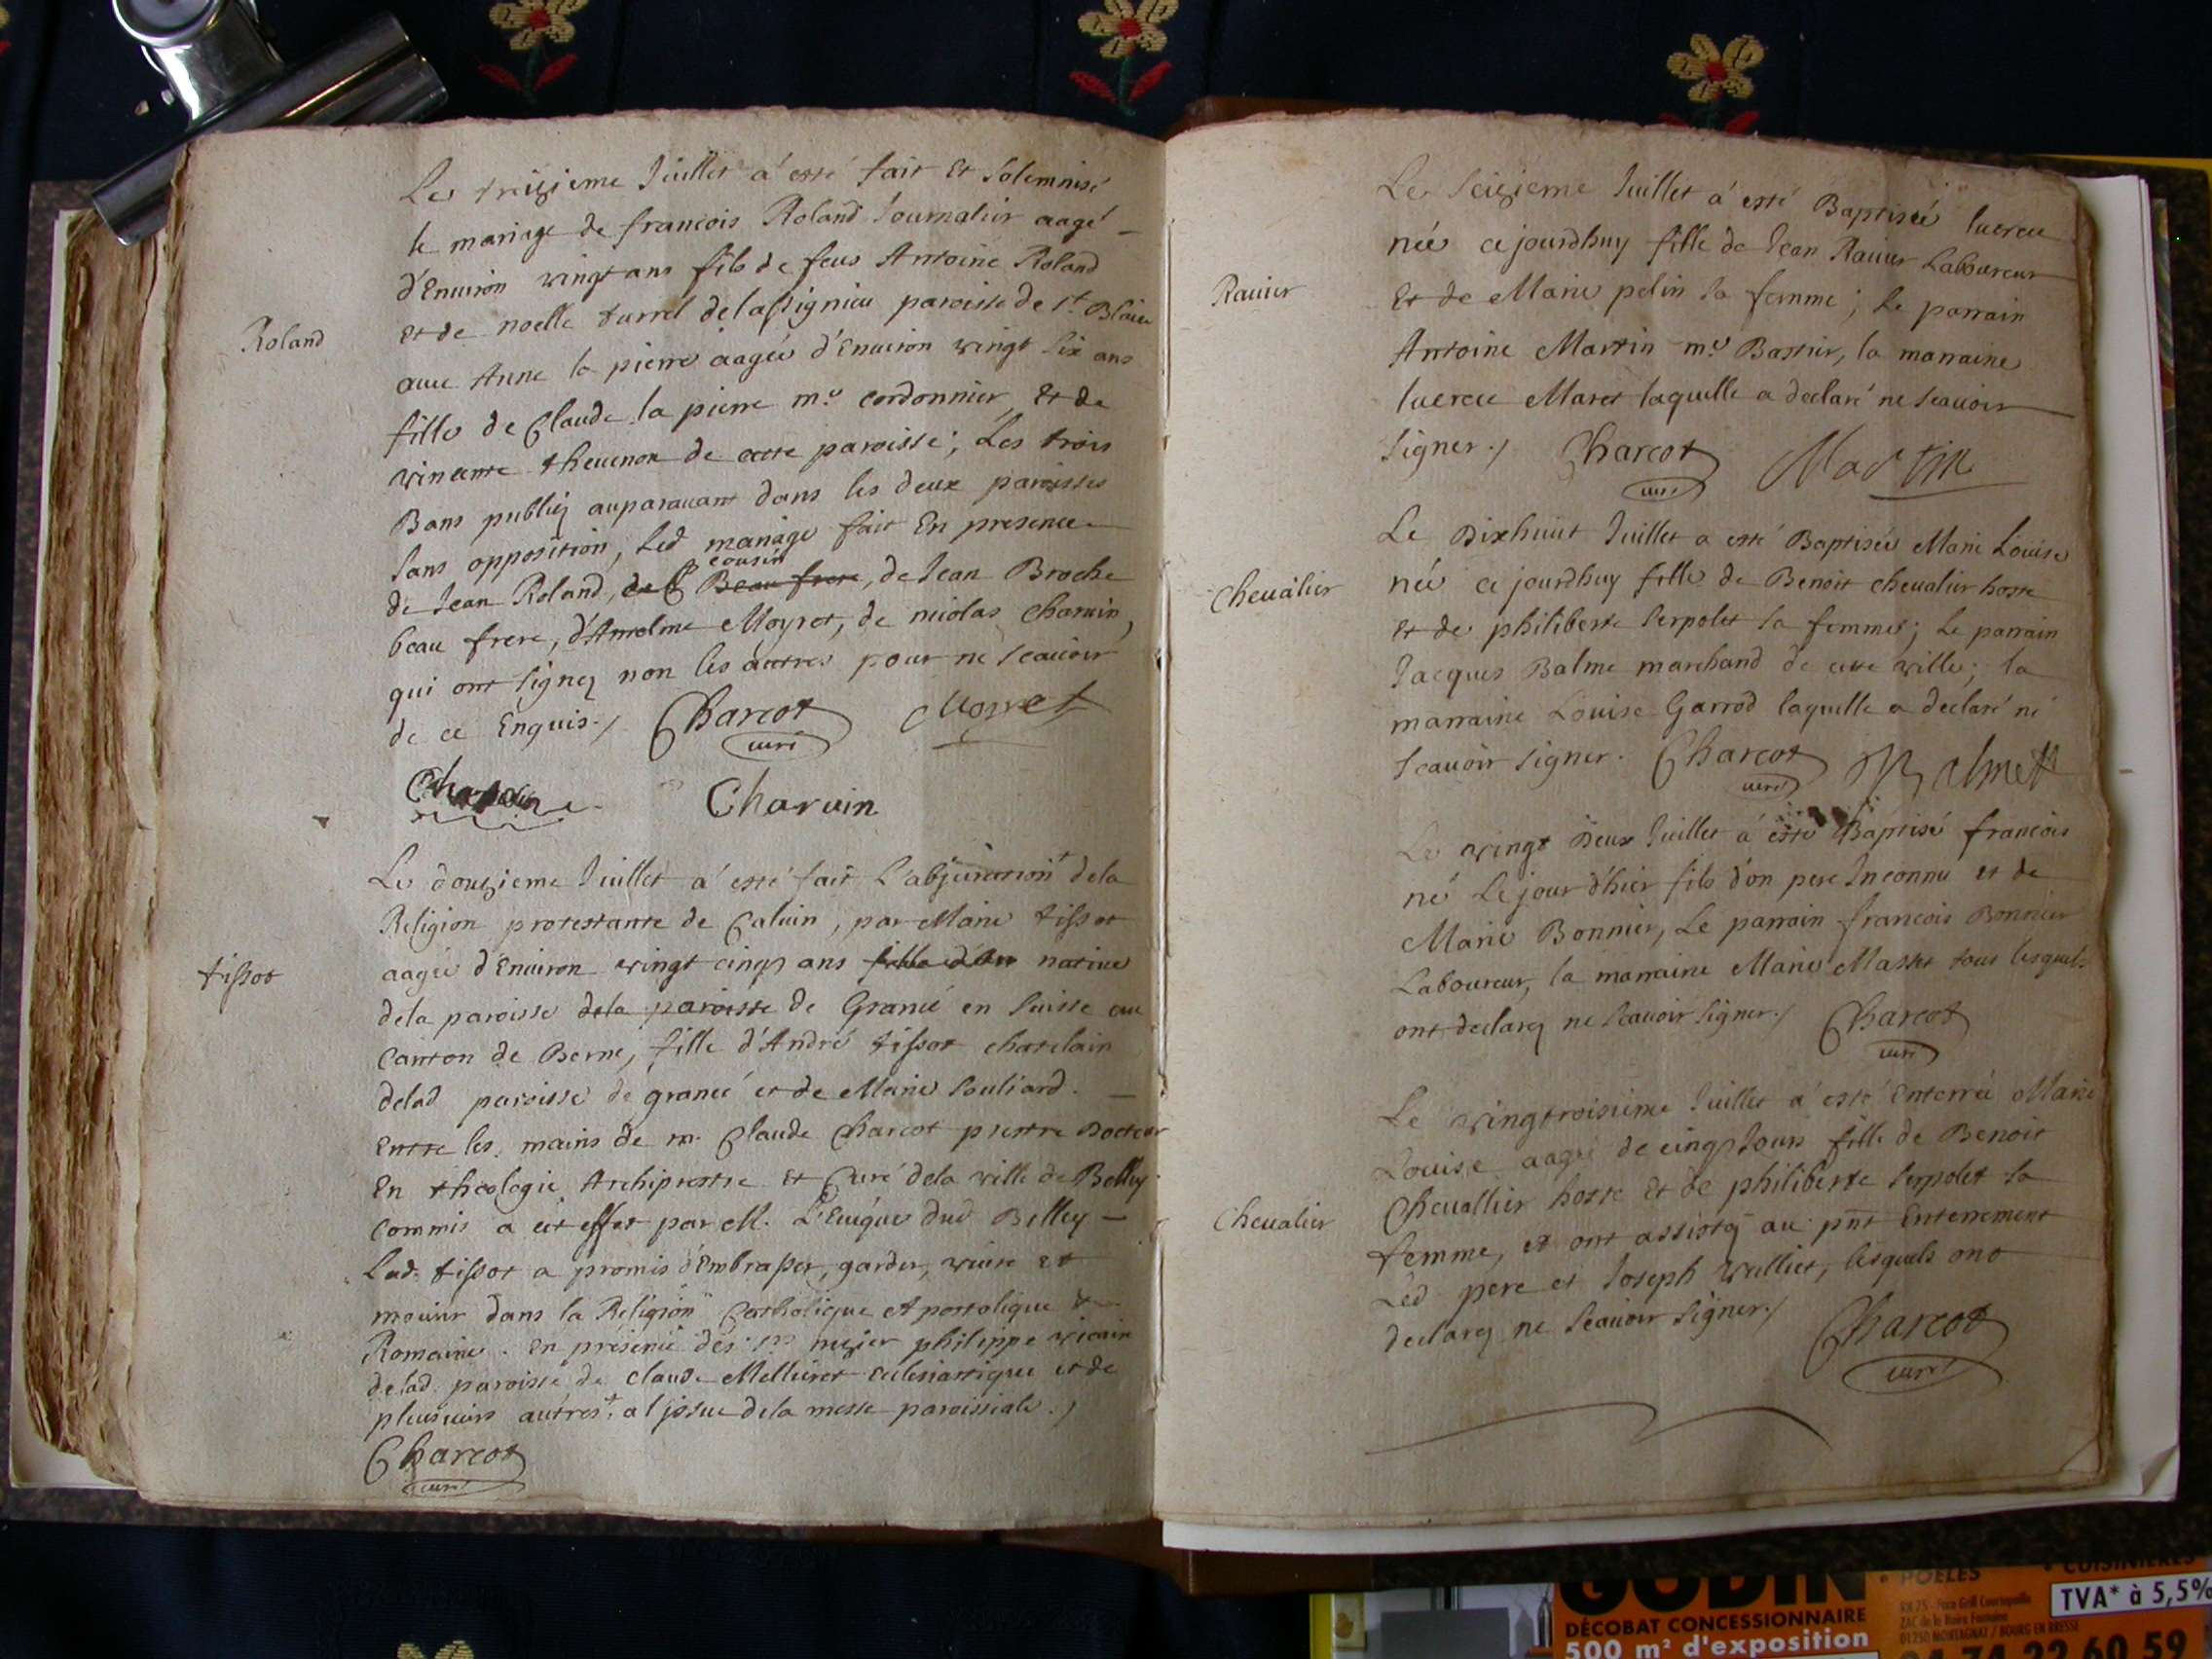 Le treizieme Juillet a esté fait et solemnisé
le mariage de francois Roland Journalier aagé
d'Enuiron vingt ans fils de feus Antoine Roland
Roland
et de noelle turrel de lassignieu paroisse de st. Blaise
auec Anne la pierre aagée d'Enuiron vingt six ans
fille de Claude la pierre me. cordonnier, et de
vincente theuenon de cette paroisse; Les trois
Bans publiez auparauant dans les deux paroisses
sans opposition, Led mariage fait En presence
cousin
de Jean Roland, Beau frere, de Jean Broche
beau frere, d'Antelme Moyret, de nicolas Charuin,
qui ont signez non les autres pour ne scauoir
de ce Enquis./ Charcot Moyret
curé
Charuin
Le douzieme Juillet a esté fait L'abjuration dela
Religion protestante de Caluin, par Marie tissot
aagée d'Enuiron vingt cinq ans fille d'An natiue
tissot
dela paroisse dela paroisse de Grancé en Suisse au
Canton de Berne, fille d'André tissot chatelain
delad paroisse de grancé et de Marie Souliard.
Entre les mains de m. Claude Charcot prestre Docteur
En theologie Archiprestre et Curé dela ville de Belley
commis a cet effet par M. L'Euêque dud Belley
Lad. tissot a promis d'Embrasser, garder, viure et
mourir dans la Religion Catholique Apostolique &
Romaine. En présence des srs nizier philippe vicaire
delad. paroisse de claude Mellieret Eclesiastique et de
plusieurs autres. a l'jssue dela messe paroissiale./
Charcot
curé
Le seizieme Juillet a esté Baptisée lucrece
née cejourdhuy fille de Jean Rauier Laboureur
Rauier
et de Marie pelin sa femme; Le parrain
Antoine Martin me. Bastier, la marraine
lucrece Maret laquelle a declaré ne scauoir
signer./ Charcot Martin
curé
Le Dixhuit Juillet a esté Baptisée Marie Louise
Cheualier
née cejourdhuy fille de Benoit cheualier hoste
et de philiberte serpolet sa femme; Le parrain
Jacques Balme marchand de cette ville; la
marraine Louise Garrod laquelle a declaré ne
scauoir signer. Charcot
curé
Le vingt Deux Juillet a esté Baptisé francois
né Lejour d'hier fils d'on pere Inconnu et de
Marie Bonnier, Le parrain francois Bonnier
Laboureur, la marraine Marie Masset tous lesquels
ont declarez ne scauoir signer./ Charcot
curé
Le vingtroisieme Juillet a esté Enterrée Marie
Louise aagée de cinq Jours fille de Benoit
Cheuallier hoste et de philiberte serpolet sa
Cheualier
femme, et ont assistez au pnt Enterrement
Led pere et Joseph vullliet, lesquels ont
declarez ne scauoir signer./ Charcot
curé
GODIN
DÉCOBAT CONCESSIONNAIRE
500 m² d'exposition
POÊLES • CUISINIÈRES
TVA* à 5,5%
01250 MONTAGNAT / BOURG EN BRESSE
04 74 22 60 59